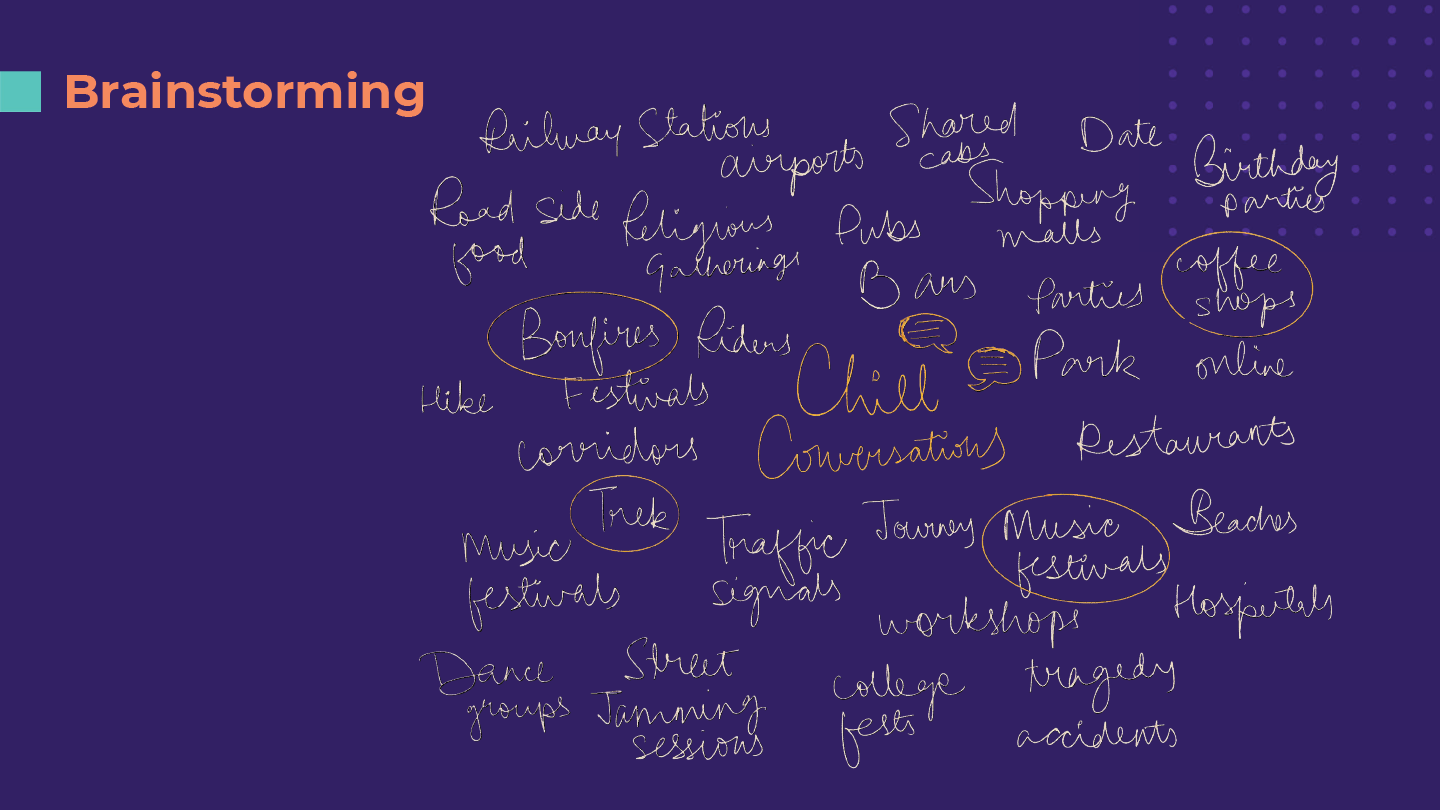 Brainstorming
Railway Stations
airports
Shared
cabs
Date
Birthday
parties
Road side
food
Religious
Gatherings
Pubs
Shopping
malls
Bars
Parties
coffee
shops
Bonfires
Riders
Chill
Conversations
Park
online
Hike
Festivals
corridors
Restaurants
Trek
Music
festivals
Traffic
signals
Journey
Music
festivals
Beaches
workshops
Hospitals
Dance
groups
Street
Jamming
sessions
college
fests
tragedy
accidents